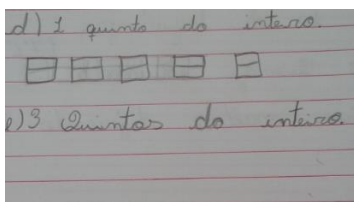 d) 1 quinto do inteiro.
e) 3 Quintos do inteiro.